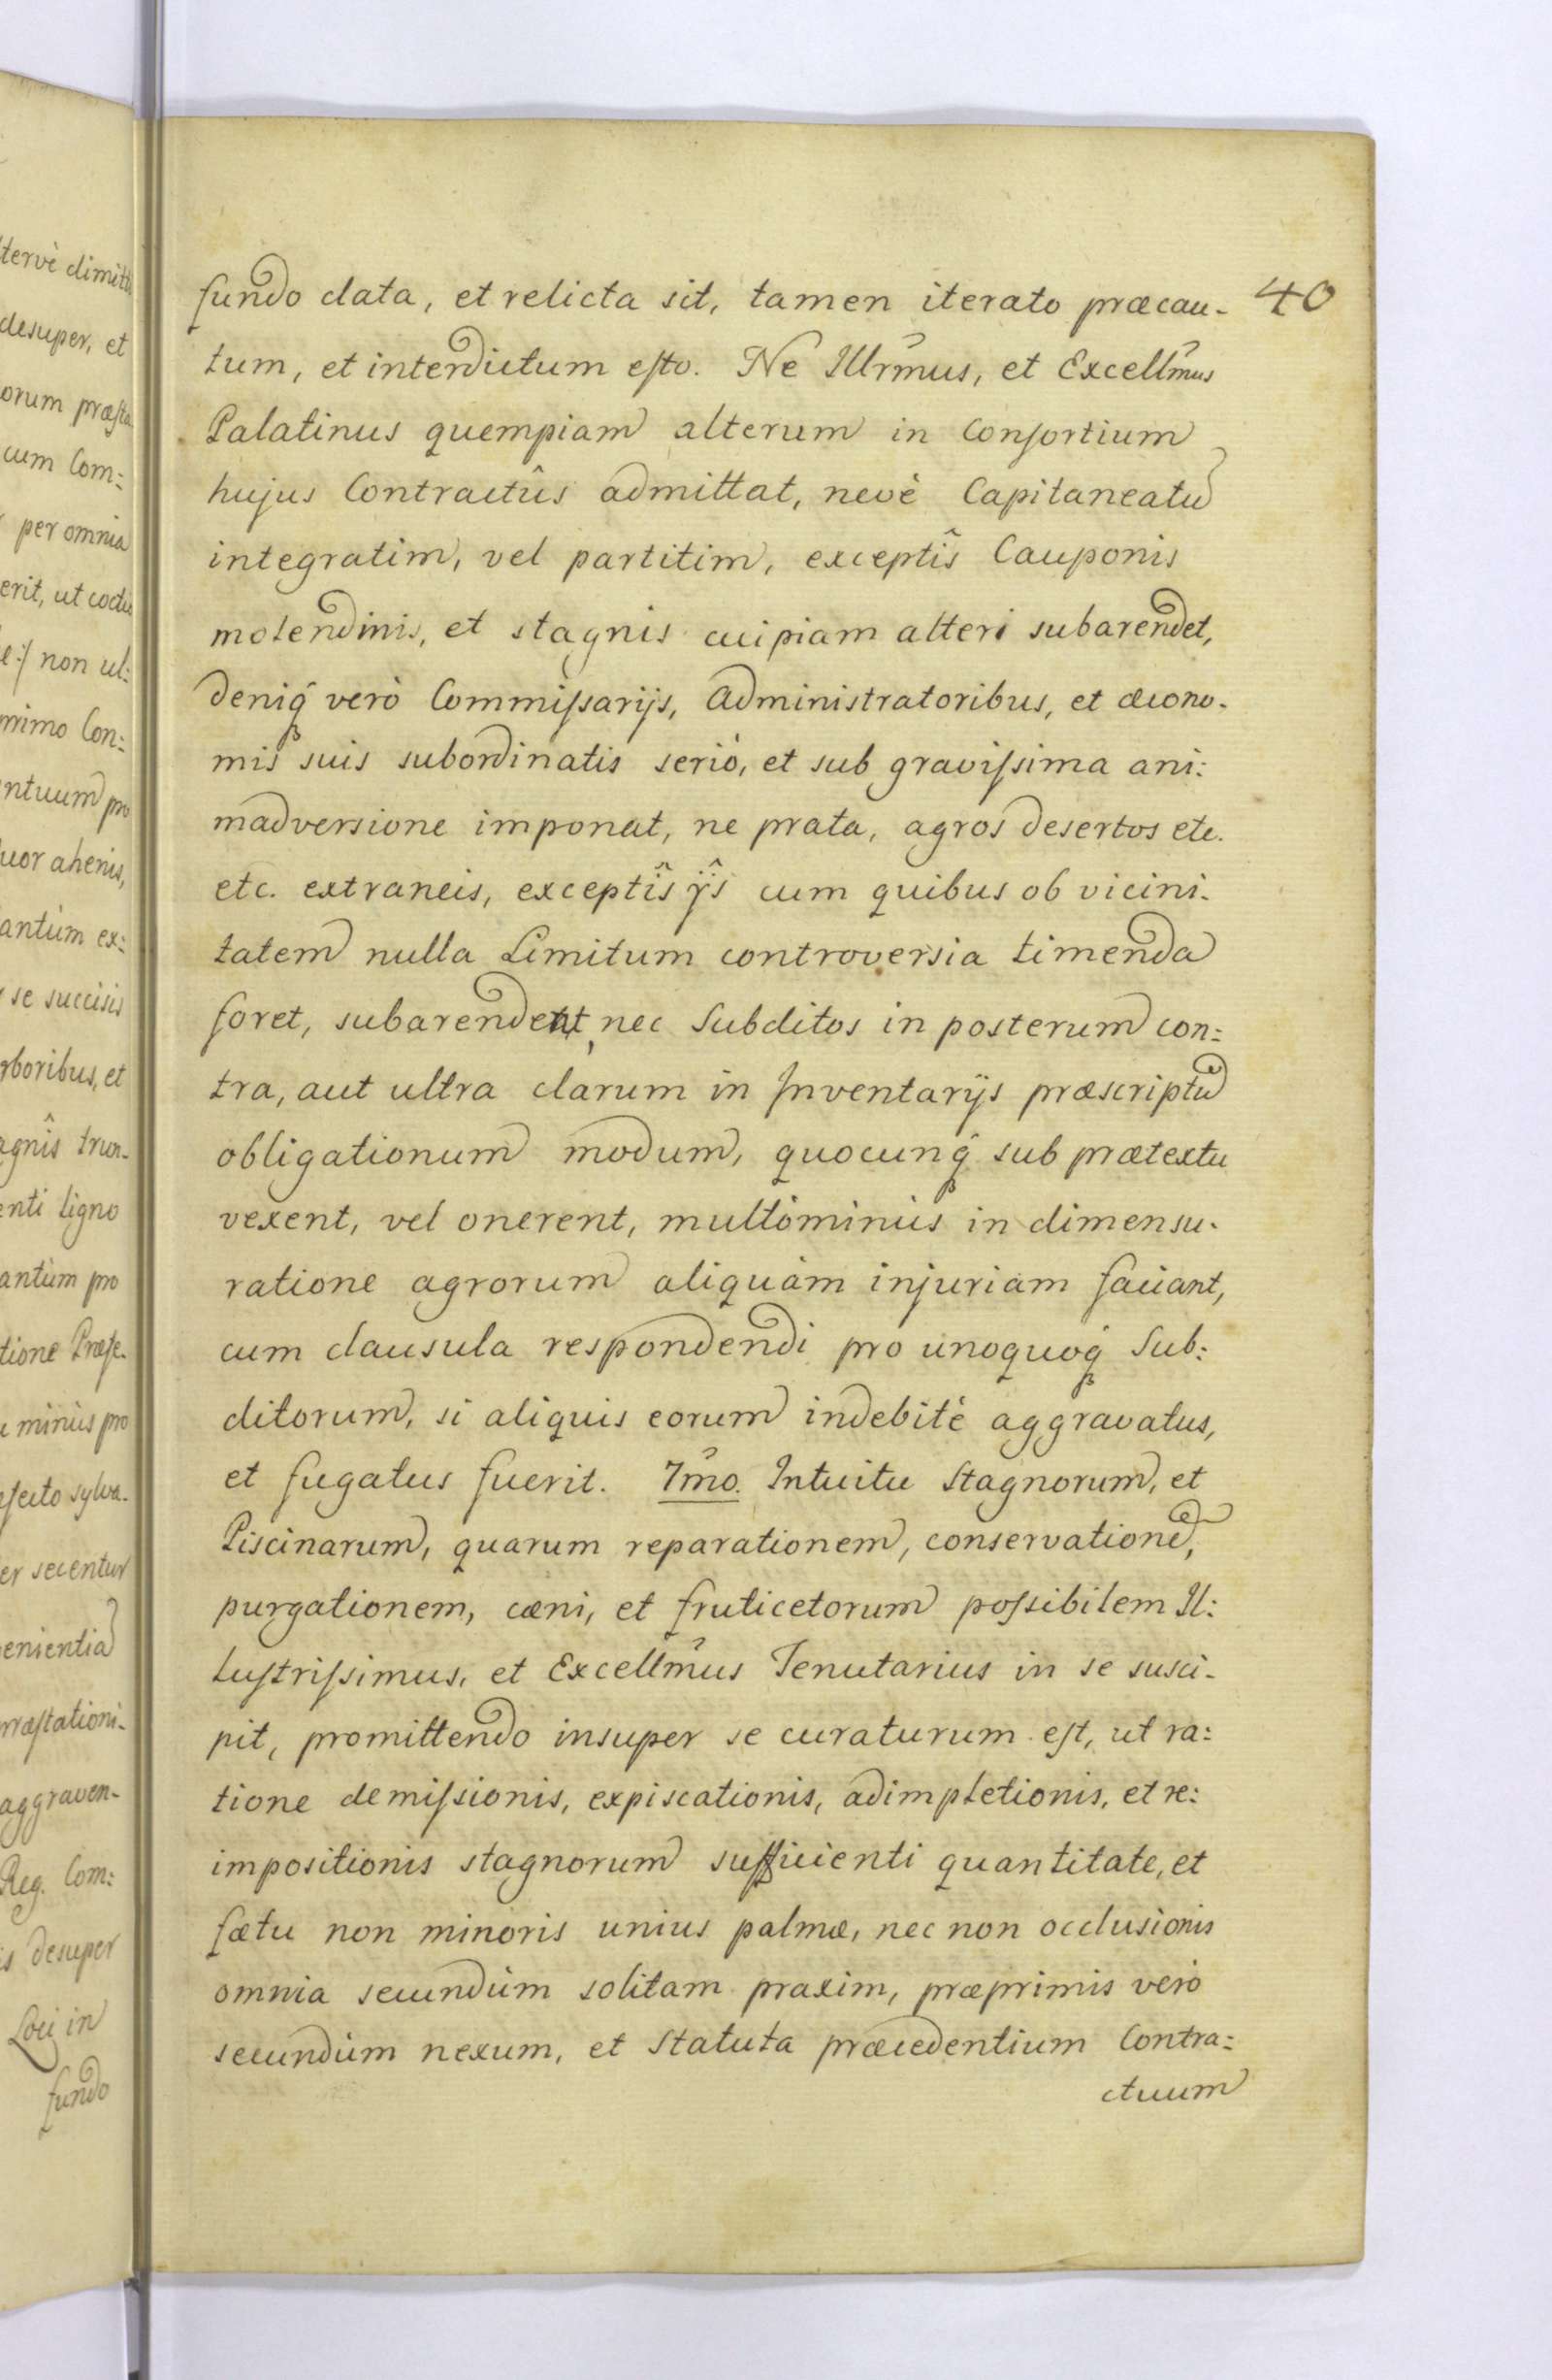 fundo data, et relicta sit, tamen iterato præcau-
40
tum, et interdictum esto. Ne Illrmus, et Excellmus
Palatinus quempiam alterum in Consortium
hujus Contractûs admittat, nevè Capitaneatu
integratim, vel partitim, exceptîs Cauponis
molendinis, et stagnis cuipiam alteri subarendet,
deniq verò Commissarijs, Administratoribus, et œcono-
mis suis subordinatis seriò, et sub gravissima ani:
madversione imponat, ne prata, agros desertos etc.
etc. extraneis, exceptîs ijs cum quibus ob vicini-
tatem nulla Limitum controversia timenda
foret, subarendent, nec Subditos in posterum con:
tra, aut ultra clarum in Inventarijs præscriptu
obligationum modum, quocunq sub prætextu
vexent, vel onerent, multòminùs in dimensu-
ratione agrorum aliquàm injuriam faciant,
cum clausula respondendi pro unoquoq Sub:
ditorum, si aliquis eorum indebitè aggravatus,
et fugatus fuerit. 7mo. Intuitu Stagnorum, et
Piscinarum, quarum reparationem, conservatione,
purgationem, cæni, et fruticetorum possibilem Il:
lustrissimus, et Excellmus Tenutarius in se susci-
pit, promittendo insuper se curaturum est, ut ra:
tione demissionis, expiscationis, adimpletionis, et re:
impositionis stagnorum sufficienti quantitate, et
fœtu non minoris unius palmæ, nec non occlusionis
omnia secundùm solitam praxim, præprimis verò
secundùm nexum, et Statuta præcedentium Contra:
ctuum
tervè dimitti
desuper, et
orum præsta
cum Com:
per omnia
erit, ut
e:/ non ul:
nimo Con:
ntuum pro
uor ahenis,
antùm ex:
se succisis
rboribus, et
agnîs trun-
enti ligno
antùm pro
tione Præfe-
minùs pro
fecto sylva-
er secentur
enientia
ræstationi-
aggraven-
Reg. Com:
is desuper
Loci in
fundo